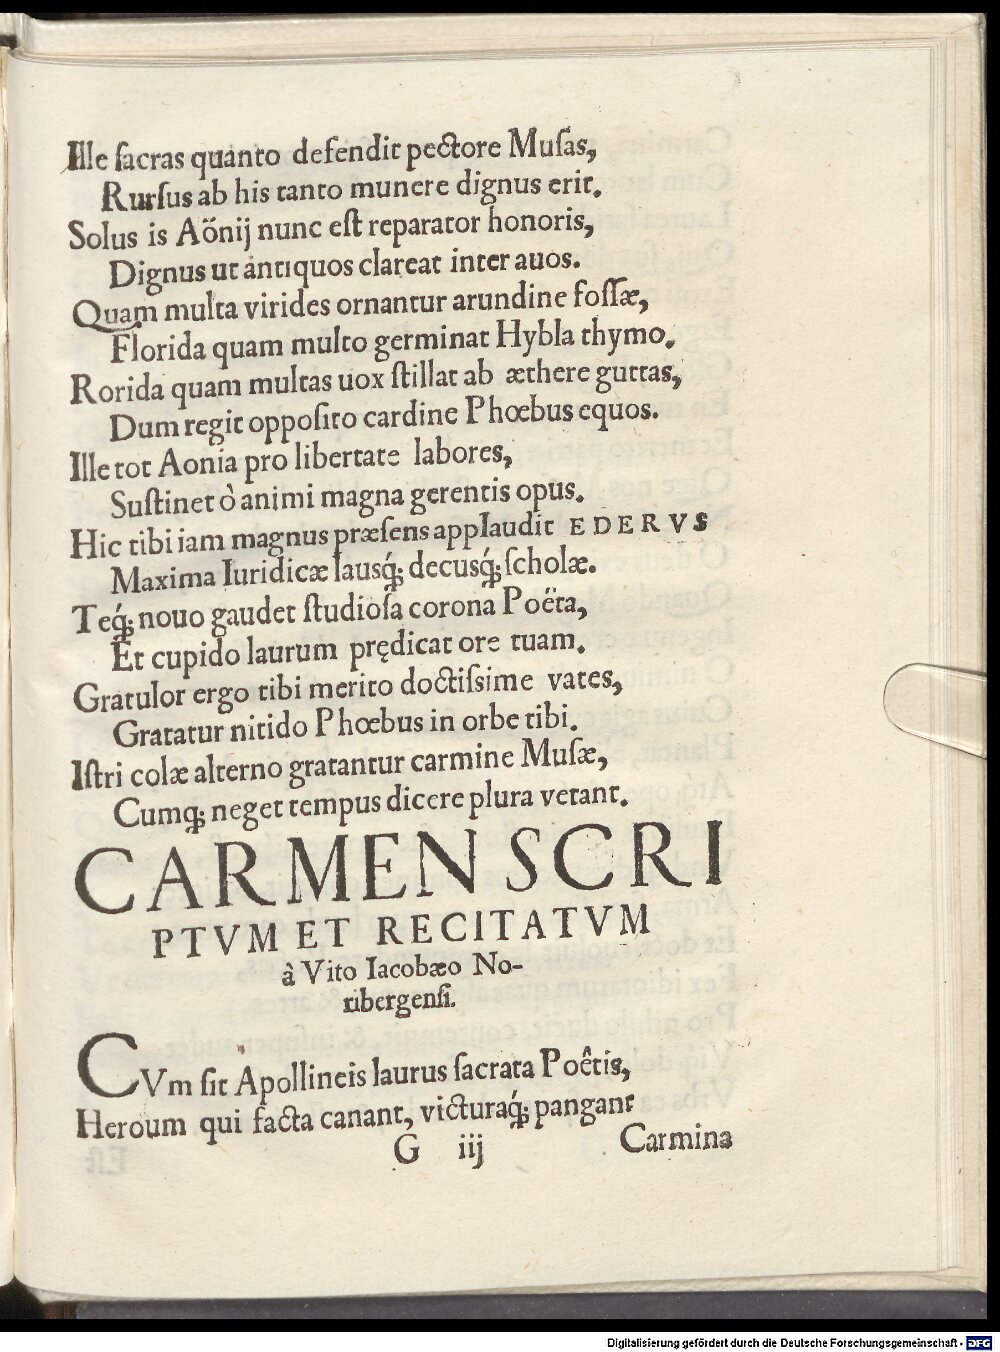 Ille ſacras quanto defendit pectore Muſas,
Rurſus ab his tanto munere dignus erit.
Solus is Aönij nunc eſt reparator honoris,
Dignus ut antiquos clareat inter auos.
Quam multa virides ornantur arundine foſſæ,
Florida quam multo germinat Hybla thymo.
Rorida quam multas uox ſtillat ab æthere guttas,
Dum regit oppoſito cardine Phœbus equos.
Ille tot Aonia pro libertate labores,
Suſtinet ò animi magna gerentis opus.
Hic tibi iam magnus præſens applaudit EDERVS
Maxima Iuridicæ lausq́; decusq́; ſcholæ.
Teq́; nouo gaudet ſtudioſa corona Poëta,
Et cupido laurum prędicat ore tuam.
Gratulor ergo tibi merito doctiſsime vates,
Gratatur nitido Phœbus in orbe tibi.
Iſtri colæ alterno gratantur carmine Muſæ,
Cumq; neget tempus dicere plura vetant.
CARMEN SCRI
PTVM ET RECITATVM
à Vito Iacobæo No-
ribergenſi.
CVm ſit Apollineis laurus ſacrata Poêtis,
Heroum qui facta canant, victuraq́; pangant
G iij Carmina
Digitalisierung gefördert durch die Deutsche Forschungsgemeinschaft - DFG